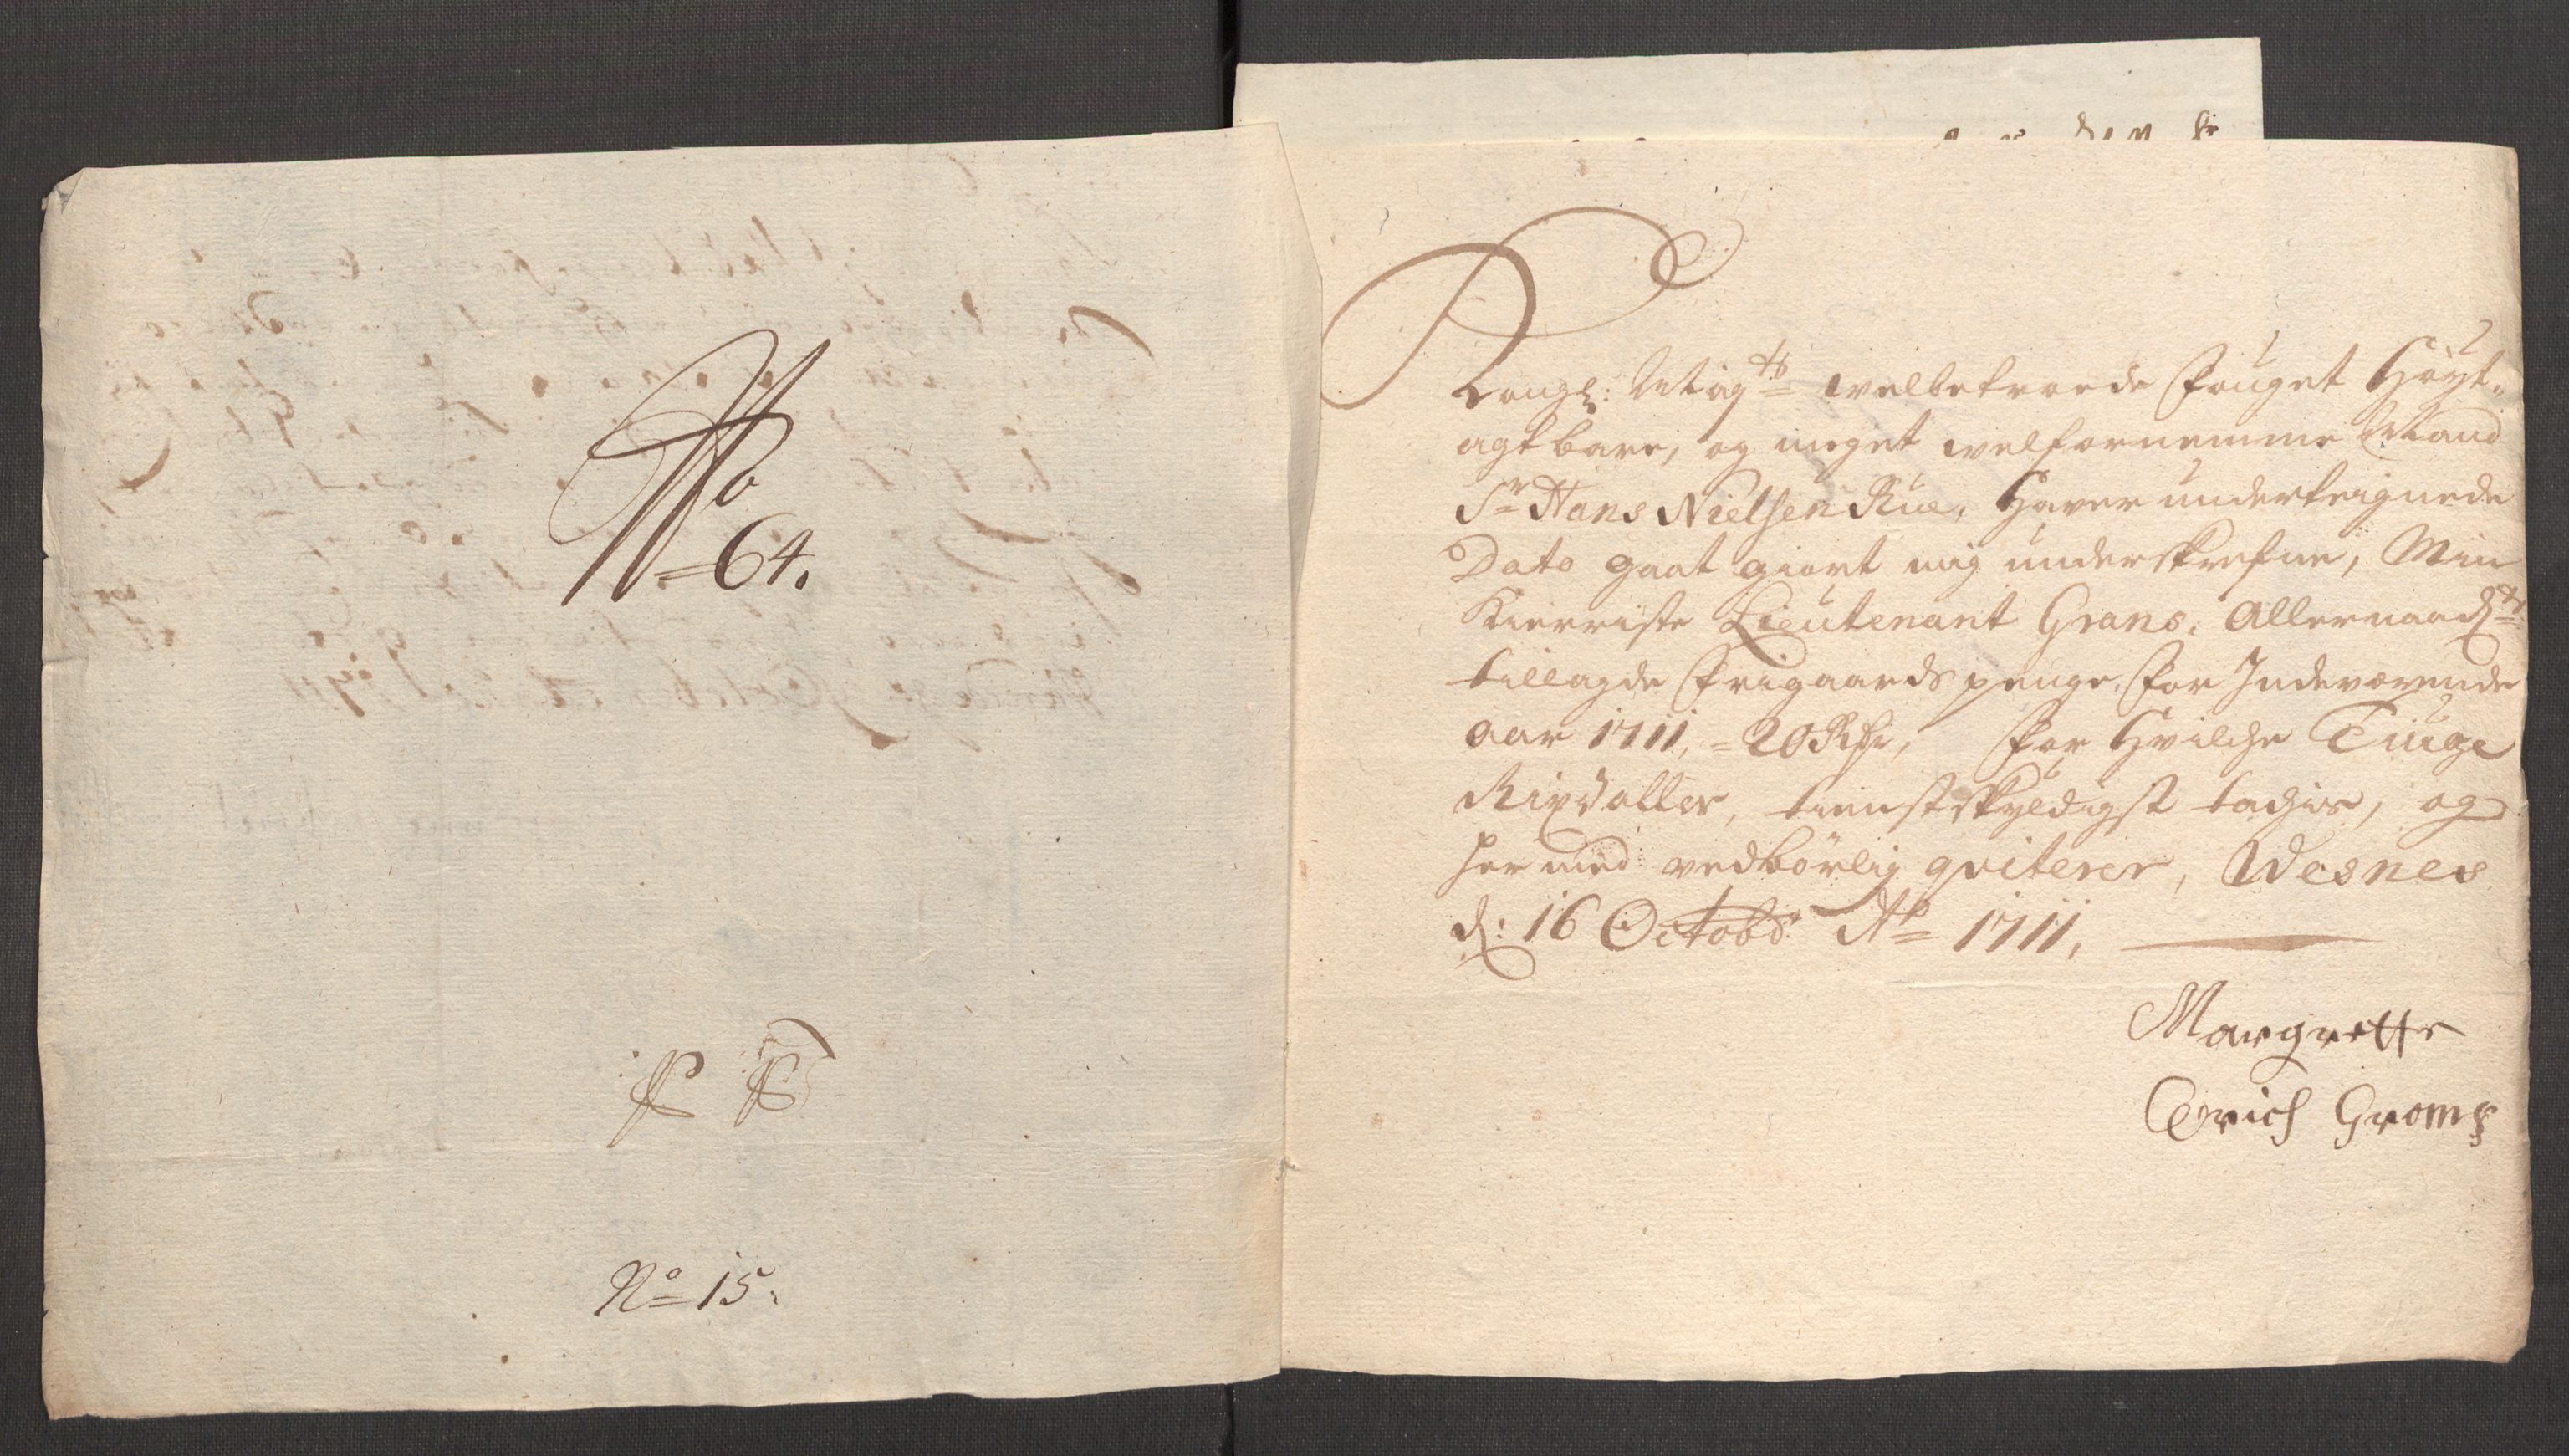 No
=64.
No=15.
Kongl: Mayts welbetroede Fouget Höyt,
agtbare, og meget welfornemme Mand
Sr Hans Nielsen Rúe, Haver underteignede
Dato gaat giort mig underskrefne, Min
Kierriste Lieutenant Grans, Allernaadst
tillagde Frigaards penge, for Indeværende
aar 1711, = 20 Rdr, for Hvilche Tiuge
Rixdaller, tienstskyldigst tachis, og
her med vedbörlig qviterer, Wesnes
d: 16 Octobr Ao 1711,
Margrette
Erich Grams